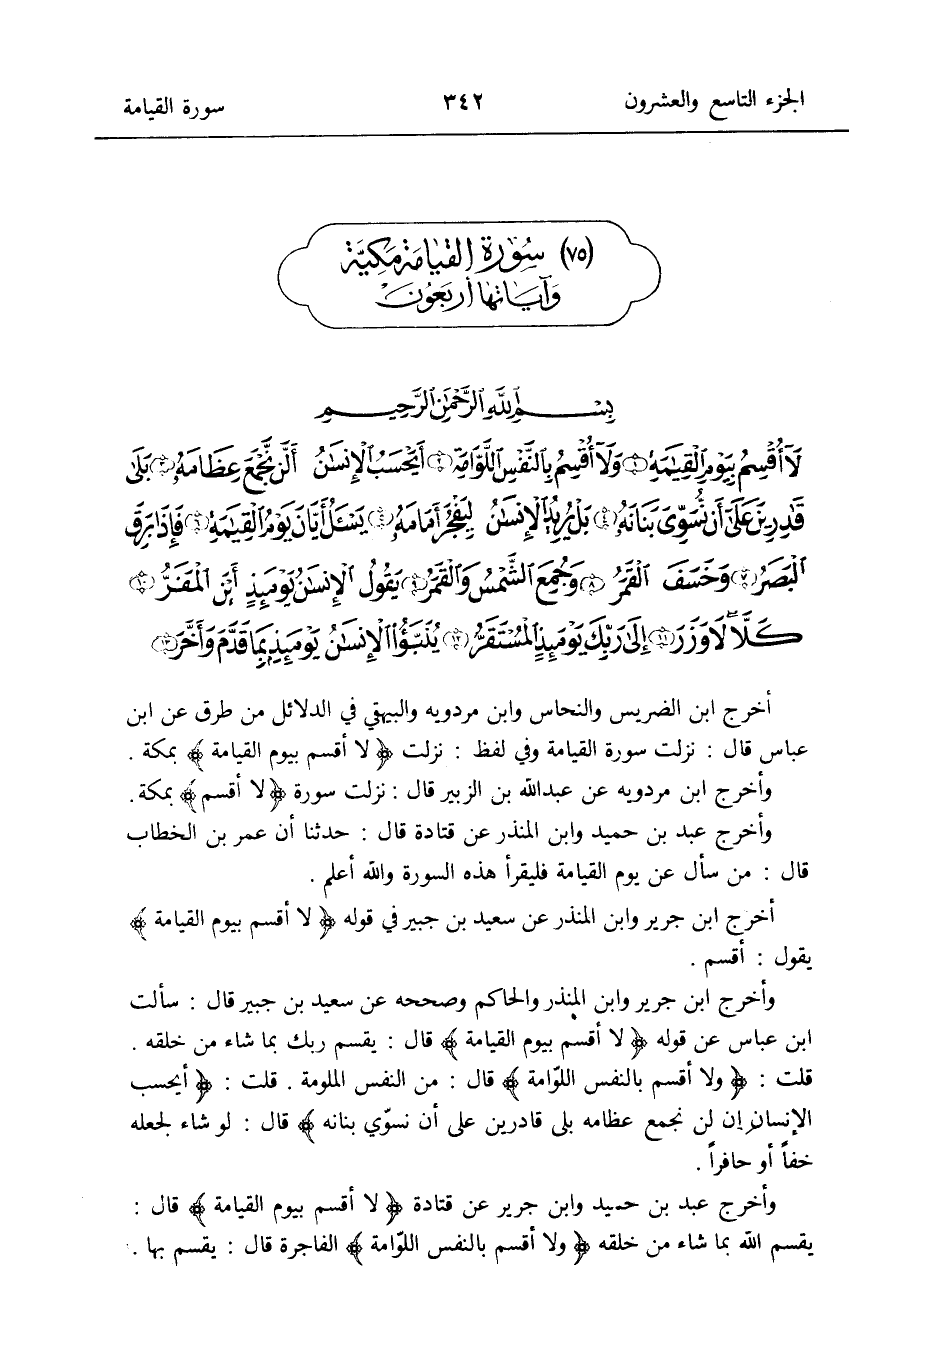 الجزء التاسع والعشرون ٣٤٢ سورة القيامة
(٧٥) سورة القيامة مكية
وآياتها أربعون
بسم الله الرحمن الرحيم
لَآ أُقْسِمُ بِيَوْمِ ٱلْقِيَٰمَةِ ﴿١﴾ وَلَآ أُقْسِمُ بِٱلنَّفْسِ ٱللَّوَّامَةِ ﴿٢﴾ أَيَحْسَبُ ٱلْإِنسَٰنُ أَلَّن نَّجْمَعَ عِظَامَهُۥ ﴿٣﴾ بَلَىٰ
قَٰدِرِينَ عَلَىٰٓ أَن نُّسَوِّىَ بَنَانَهُۥ ﴿٤﴾ بَلْ يُرِيدُ ٱلْإِنسَٰنُ لِيَفْجُرَ أَمَامَهُۥ ﴿٥﴾ يَسْـَٔلُ أَيَّانَ يَوْمُ ٱلْقِيَٰمَةِ ﴿٦﴾ فَإِذَا بَرِقَ
ٱلْبَصَرُ ﴿٧﴾ وَخَسَفَ ٱلْقَمَرُ ﴿٨﴾ وَجُمِعَ ٱلشَّمْسُ وَٱلْقَمَرُ ﴿٩﴾ يَقُولُ ٱلْإِنسَٰنُ يَوْمَئِذٍ أَيْنَ ٱلْمَفَرُّ ﴿١٠﴾
كَلَّا لَا وَزَرَ ﴿١١﴾ إِلَىٰ رَبِّكَ يَوْمَئِذٍ ٱلْمُسْتَقَرُّ ﴿١٢﴾ يُنَبَّؤُا۟ ٱلْإِنسَٰنُ يَوْمَئِذٍۭ بِمَا قَدَّمَ وَأَخَّرَ ﴿١٣﴾
أخرج ابن الضريس والنحاس وابن مردويه والبيهقي في الدلائل من طرق عن ابن
عباس قال : نزلت سورة القيامة وفي لفظ : نزلت ﴿ لا أقسم بيوم القيامة ﴾ بمكة .
وأخرج ابن مردويه عن عبدالله بن الزبير قال : نزلت سورة ﴿ لا أقسم ﴾ بمكة .
وأخرج عبد بن حميد وابن المنذر عن قتادة قال : حدثنا أن عمر بن الخطاب
قال : من سأل عن يوم القيامة فليقرأ هذه السورة والله أعلم .
أخرج ابن جرير وابن المنذر عن سعيد بن جبير في قوله ﴿ لا أقسم بيوم القيامة ﴾
يقول : أقسم .
وأخرج ابن جرير وابن المنذر والحاكم وصححه عن سعيد بن جبير قال : سألت
ابن عباس عن قوله ﴿ لا أقسم بيوم القيامة ﴾ قال : يقسم ربك بما شاء من خلقه .
قلت : ﴿ ولا أقسم بالنفس اللوّامة ﴾ قال : من النفس الملومة . قلت : ﴿ أيحسب
الإنسان إن لن نجمع عظامه بلى قادرين على أن نسوّي بنانه ﴾ قال : لو شاء لجعله
خفاً أو حافراً .
وأخرج عبد بن حميد وابن جرير عن قتادة ﴿ لا أقسم بيوم القيامة ﴾ قال :
يقسم الله بما شاء من خلقه ﴿ ولا أقسم بالنفس اللوّامة ﴾ الفاجرة قال : يقسم بها .